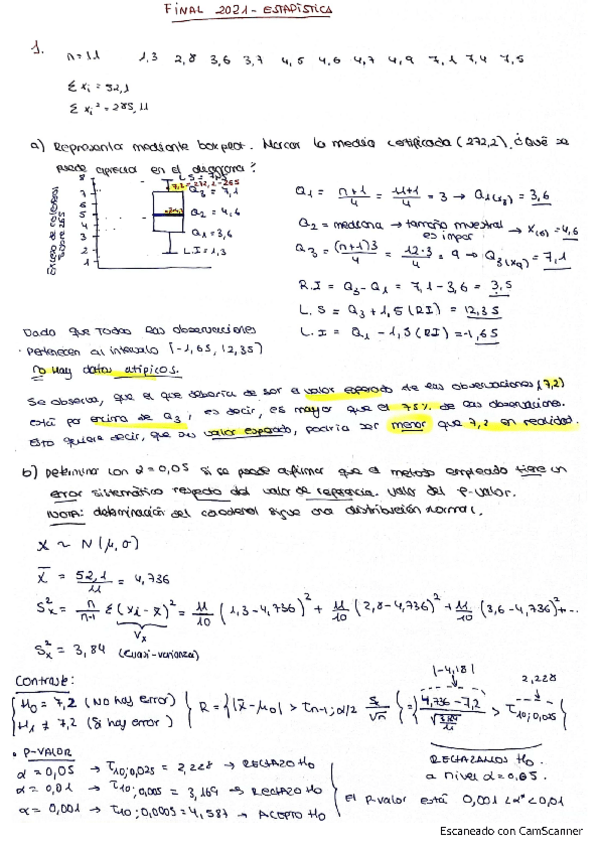 FINAL 2021 - ESTADÍSTICA
1. n=11 1,3 2,8 3,6 3,7 4,5 4,6 4,7 4,9 7,1 7,4 7,5
Σxi = 52,1
Σxi² = 285,11
a) Representar mediante boxplot. Marcar la media certificada (272,2). ¿Qué se
puede apreciar en el diagrama?
Exceso de colesterol
sobre 265
8
7
6
5
4
3
2
1
L.S = 7,5
7,2 = 272,2 - 265
Q3 = 7,1
Q2 = 4,6
Q1 = 3,6
L.I = 1,3
Q1 = n+1/4 = 11+1/4 = 3 → Q1(x3) = 3,6
Q2 = mediana → tamaño muestral es impar → X(6) = 4,6
Q3 = (n+1)3/4 = 12·3/4 = 9 → Q3(x9) = 7,1
R.I = Q3 - Q1 = 7,1 - 3,6 = 3,5
L.S = Q3 + 1,5 (RI) = 12,35
L.I = Q1 - 1,5 (RI) = -1,65
Dado que todas las observaciones
pertenecen al intervalo [-1,65, 12,35]
no hay datos atípicos.
Se observa, que el que debería de ser el valor esperado de las observaciones (7,2)
está por encima de Q3, es decir, es mayor que el 75% de las observaciones.
Esto quiere decir, que su valor esperado, podría ser menor que 7,2 en realidad.
b) Determinar con α = 0,05 si se puede afirmar que el metodo empleado tiene un
error sistemático respecto del valor de referencia. Valor del P-valor.
NOTA: determinación del colesterol sigue una distribución normal.
X ~ N(μ, σ)
X̄ = 52,1/11 = 4,736
S²x = n/n-1 Σ(xi - x̄)² = 11/10 (1,3-4,736)² + 11/10 (2,8-4,736)² + 11/10 (3,6-4,736)² + ...
Vx
S²x = 3,84 (cuasi-varianza)
Contraste: |-4,181| 2,228
{H0 = 7,2 (No hay error) H1 ≠ 7,2 (Si hay error)} R = {|x̄ - μ0| > τn-1; α/2 S/√n} = {4,736 - 7,2/√3,84/11 > τ10; 0,025}
RECHAZAMOS H0
a nivel α = 0,05.
• P-VALOR
α = 0,05 → τ10; 0,025 = 2,228 → RECHAZO H0
α = 0,01 → τ10; 0,005 = 3,169 → RECHAZO H0
α = 0,001 → τ10; 0,0005 = 4,587 → ACEPTO H0
el P-valor está 0,001 < α* < 0,01
Escaneado con CamScanner